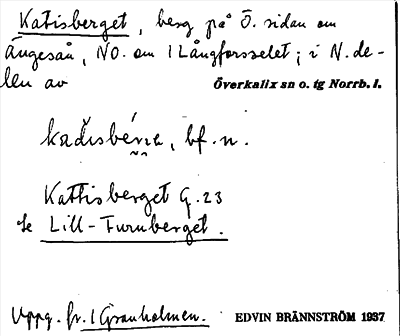 Katisberget, berg på Ö. sidan om
Ängesån, NO. om 1 Långforsselet; i N. de-
len av Överkalix sn o. tg Norrb. l.
bf. n.
Kattisberget G. 23
se Lill-Furuberget.
Uppg. fr. 1 Granholmen. EDVIN BRÄNNSTRÖM 1937